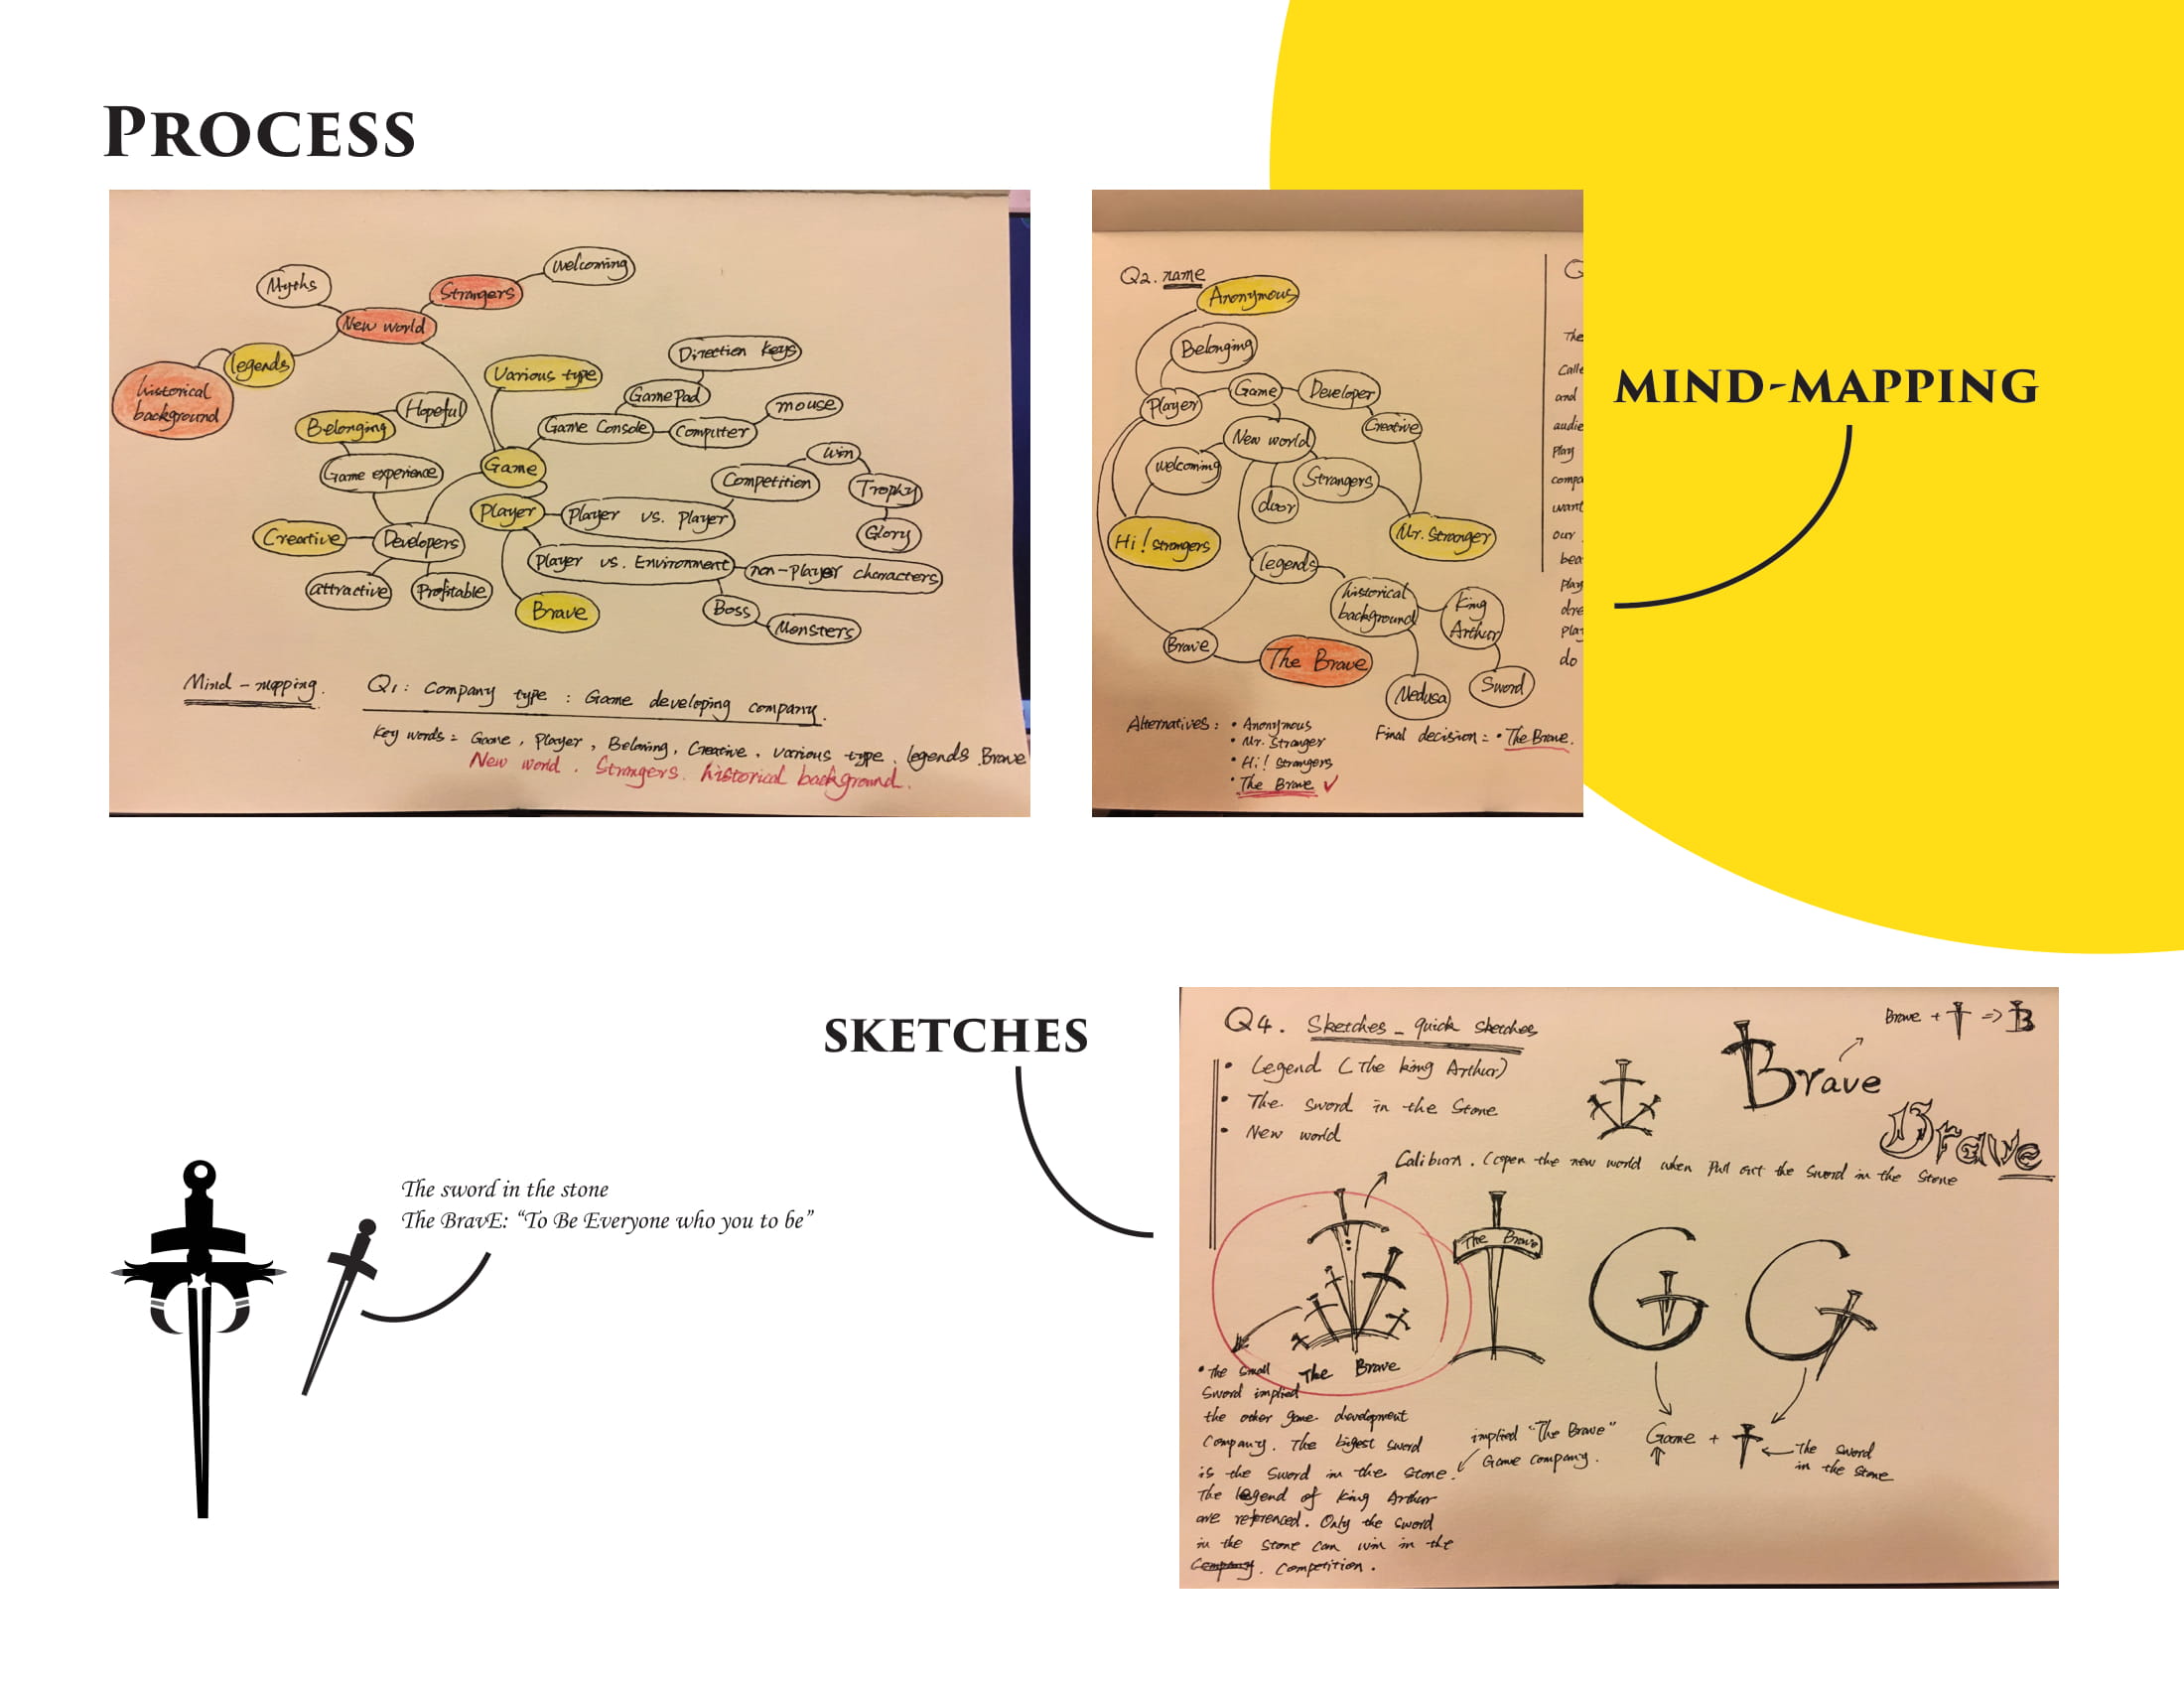 Process
Myths
Strangers
Welcoming
New world
legends
historical
background
Various type
Direction keys
GamePad
mouse
Hopeful
Belonging
Game Console
Computer
Game experience
Game
Win
Competition
Trophy
Player
Player vs. Player
Glory
Creative
Developers
Player vs. Environment
non-Player characters
attractive
Profitable
Brave
Boss
Monsters
Mind-mapping.
Q1: Company type: Game developing company.
Key words = Game, Player, Beloning, Creative, various type, legends Brave
New world. Strangers. historical background.
Q2. name
Anonymous
Belonging
Player
Game
Developer
Creative
New world
welcoming
Strangers
door
Hi! strangers
Mr. Stranger
legends
historical
background
King
Arthur
Brave
The Brave
Medusa
Sword
Alternatives: • Anonymous
• Mr. Stranger
• Hi! strangers
• The Brave ✓
Final decision = • The Brave.
The
Calle
and
audie
Play
compa
want
our
bea
play
dre
pla
do
MIND-MAPPING
SKETCHES
The sword in the stone
The BravE: “To Be Everyone who you to be”
Q4. Sketches - quick sketches
• Legend (The king Arthur)
• The Sword in the Stone
• New world
Brave + => B
Brave
Brave
Caliburn. (open the new world when Pull out the Sword in the Stone
The Brave
The Brave
• The Small
Sword implied
the other game development
Company. The bigest sword
is the Sword in the Stone.
The legend of king Arthur
are referenced. Only the sword
in the Stone can win in the
Company. Competition.
implied "The Brave"
Game company.
Game +
The sword
in the stone